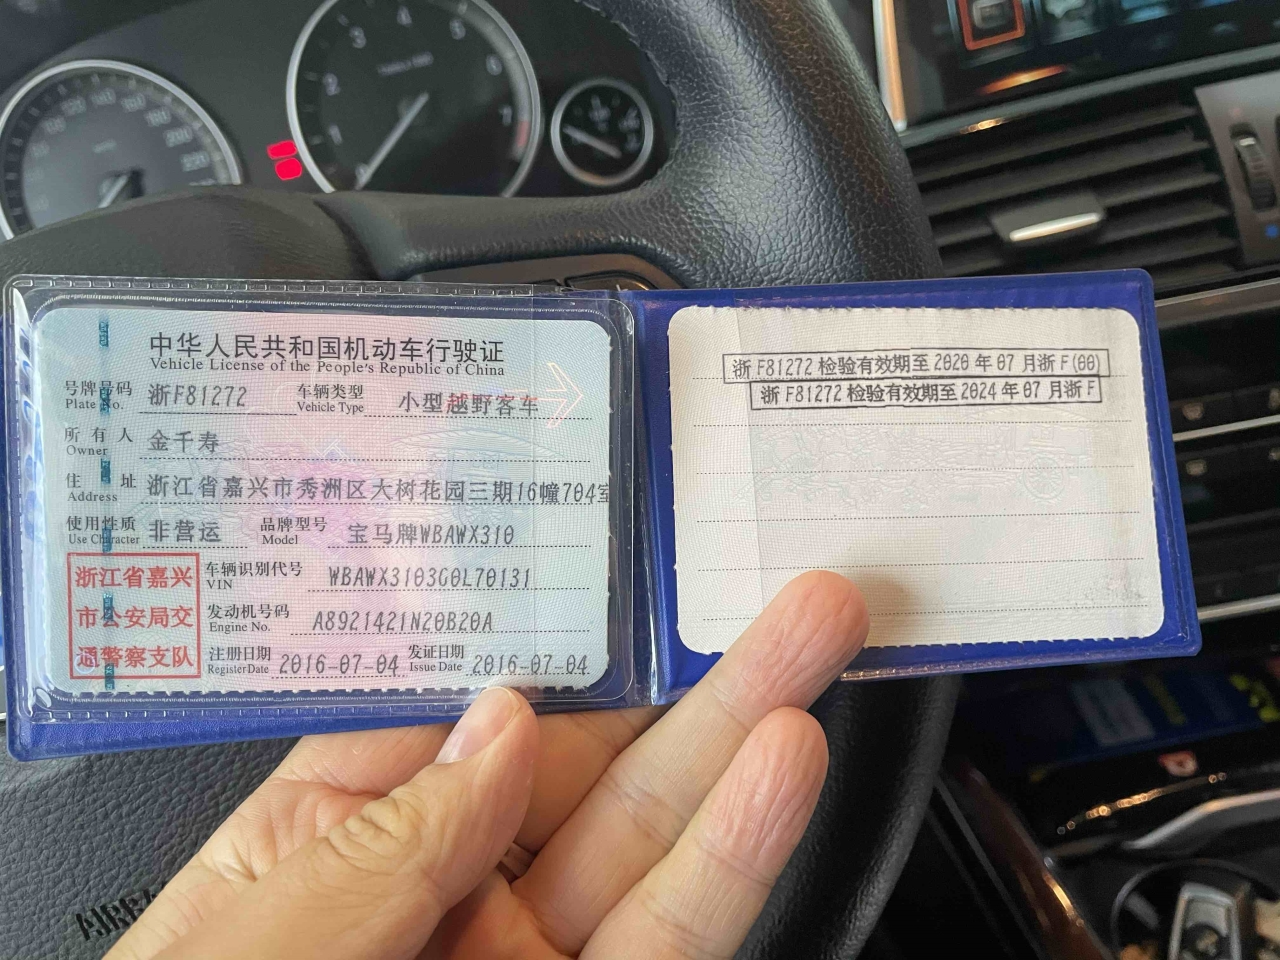 中华人民共和国机动车行驶证
Vehicle License of the People's Republic of China
号牌号码 浙F81272 车辆类型 小型越野客车
Plate No. Vehicle Type
所有人 金千寿
Owner
住址 浙江省嘉兴市秀洲区大树花园三期16幢704室
Address
使用性质 非营运 品牌型号 宝马牌WBAWX310
Use Character Model
车辆识别代号 WBAWX3103G0L70131
VIN
发动机号码 A8921421N20B20A
Engine No.
注册日期 2016-07-04 发证日期 2016-07-04
Register Date Issue Date
浙江省嘉兴
市公安局交
通警察支队
浙 F81272 检验有效期至 2020 年 07 月浙 F(00)
浙 F81272 检验有效期至 2024 年 07 月浙 F
1
2
3
4
5
6
7